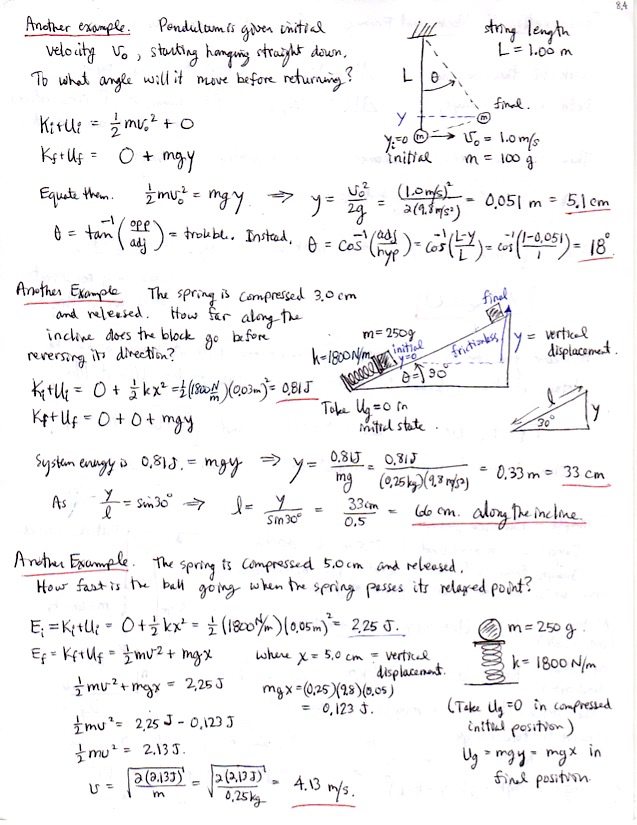 8.4
Another example. Pendulum is given initial
velocity v₀, starting hanging straight down.
To what angle will it move before returning?
string length
L = 1.00 m
L
θ
final.
y
m
yᵢ=0
m
v₀ = 1.0 m/s
initial
m = 100 g
Kᵢ+Uᵢ = ½mv₀² + 0
K_f+U_f = 0 + mgy
Equate them. ½mv₀² = mgy ⟹ y = v₀²/2g = (1.0 m/s)²/2(9.8 m/s²) = 0.051 m = 5.1 cm
θ = tan⁻¹(opp/adj) = trouble. Instead, θ = cos⁻¹(adj/hyp) = cos⁻¹((L-y)/L) = cos⁻¹((1-0.051)/1) = 18°
Another Example The spring is compressed 3.0 cm
and released. How far along the
incline does the block go before
reversing its direction?
final
m = 250 g
k = 1800 N/m
initial
y=0
frictionless
θ = 30°
y = vertical
displacement.
Take U_g = 0 in
initial state.
l
30°
y
Kᵢ+Uᵢ = 0 + ½kx² = ½(1800 N/m)(0.03m)² = 0.81 J
K_f+U_f = 0 + 0 + mgy
System energy is 0.81 J. = mgy ⟹ y = 0.81J/mg = 0.81J/(0.25kg)(9.8 m/s²) = 0.33 m = 33 cm
As y/l = sin30° ⟹ l = y/sin30° = 33cm/0.5 = 66 cm. along the incline.
Another Example. The spring is compressed 5.0 cm and released.
How fast is the ball going when the spring passes its relaxed point?
Eᵢ = Kᵢ+Uᵢ = 0 + ½kx² = ½(1800 N/m)(0.05m)² = 2.25 J.
E_f = K_f+U_f = ½mv² + mgx where x = 5.0 cm = vertical
displacement.
½mv² + mgx = 2.25 J
mgx = (0.25)(9.8)(0.05)
= 0.123 J.
½mv² = 2.25 J - 0.123 J
½mv² = 2.13 J.
v = √(2(2.13J)/m) = √(2(2.13J)/0.25kg) = 4.13 m/s.
m = 250 g.
k = 1800 N/m
(Take U_g = 0 in compressed
initial position)
U_g = mgy = mgx in
final position.